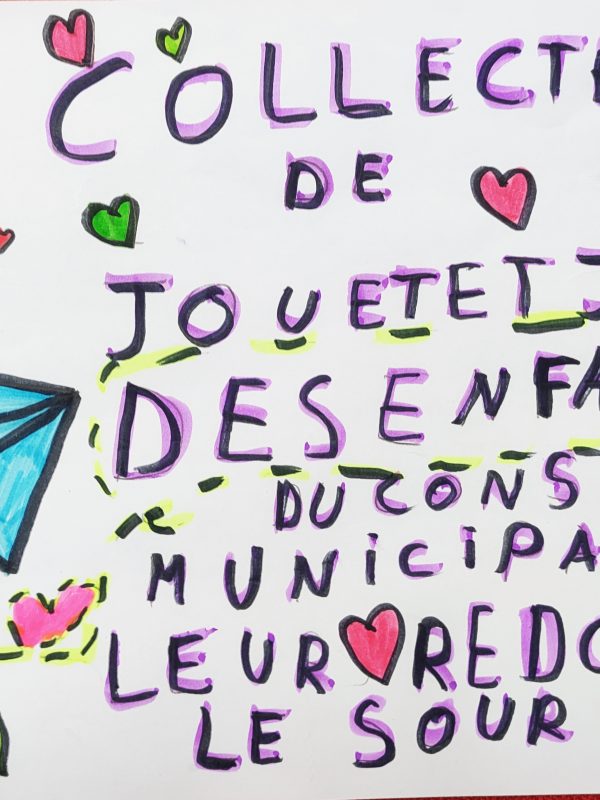 COLLECTE
DE
JOUET ET J
DES ENFA
DU CONS
MUNICIPA
LEUR REDO
LE SOUR